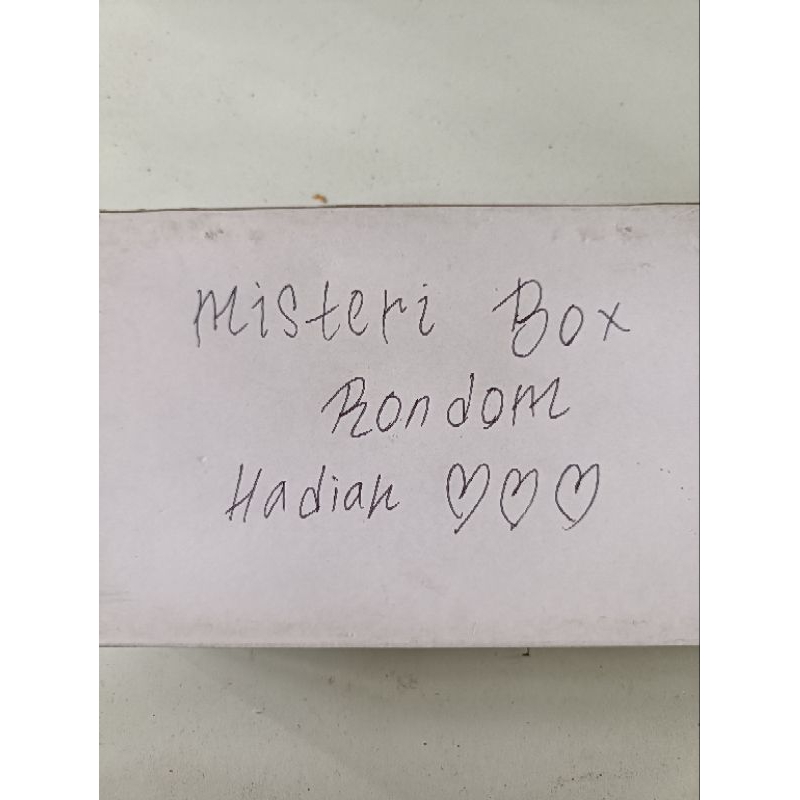 Misteri Box
Rondom
Hadiah ♡♡♡